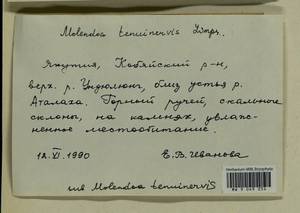 Molendoa tenuinervis Limpr.
Якутия, Кобяйский р-н,
верх. р. Ундюлюнг, близ устья р.
Аталаха. Горный ручей, скальные
склоны, на камнях, увлаж-
ненное местообитание.
12.VI.1990 Е.В. Иванова
sub Molendoa tenuinervis